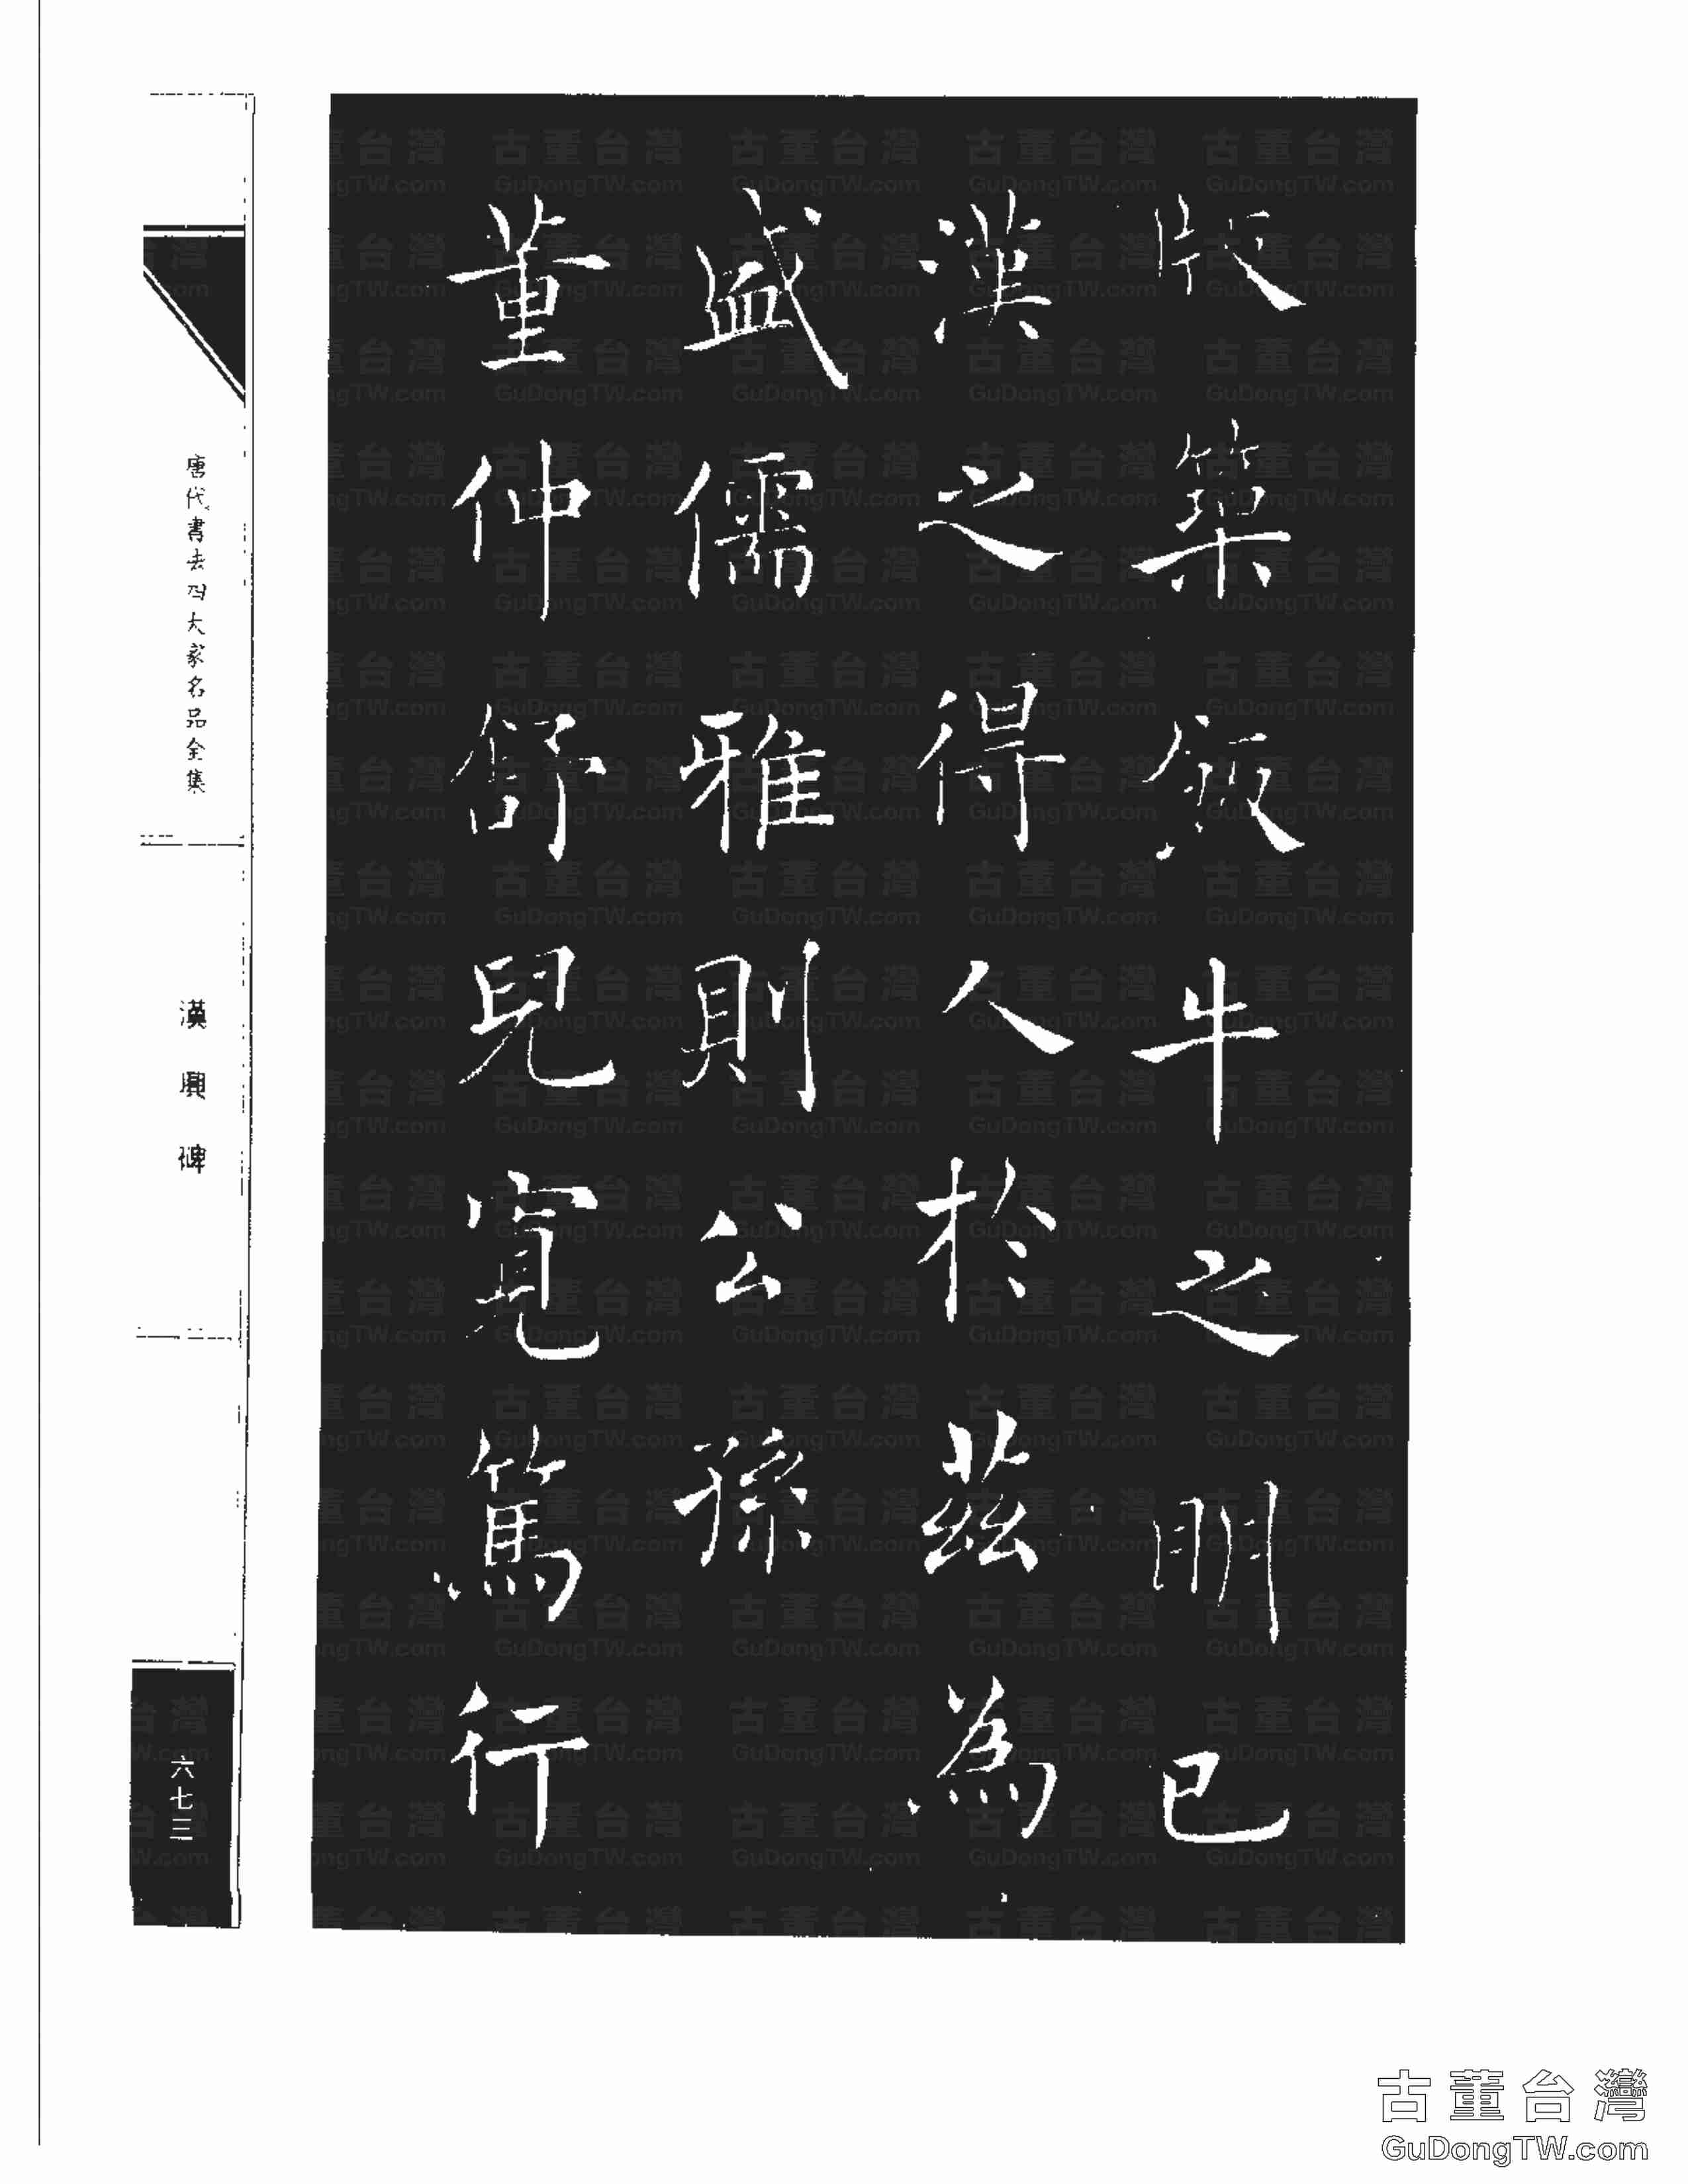 版築飯牛之明已
漢之得人於茲為
盛儒雅則公孫
董仲舒兒寬篤行
唐代書法四大家名品全集
漢興碑
六七三
古董台灣
GuDongTW.com